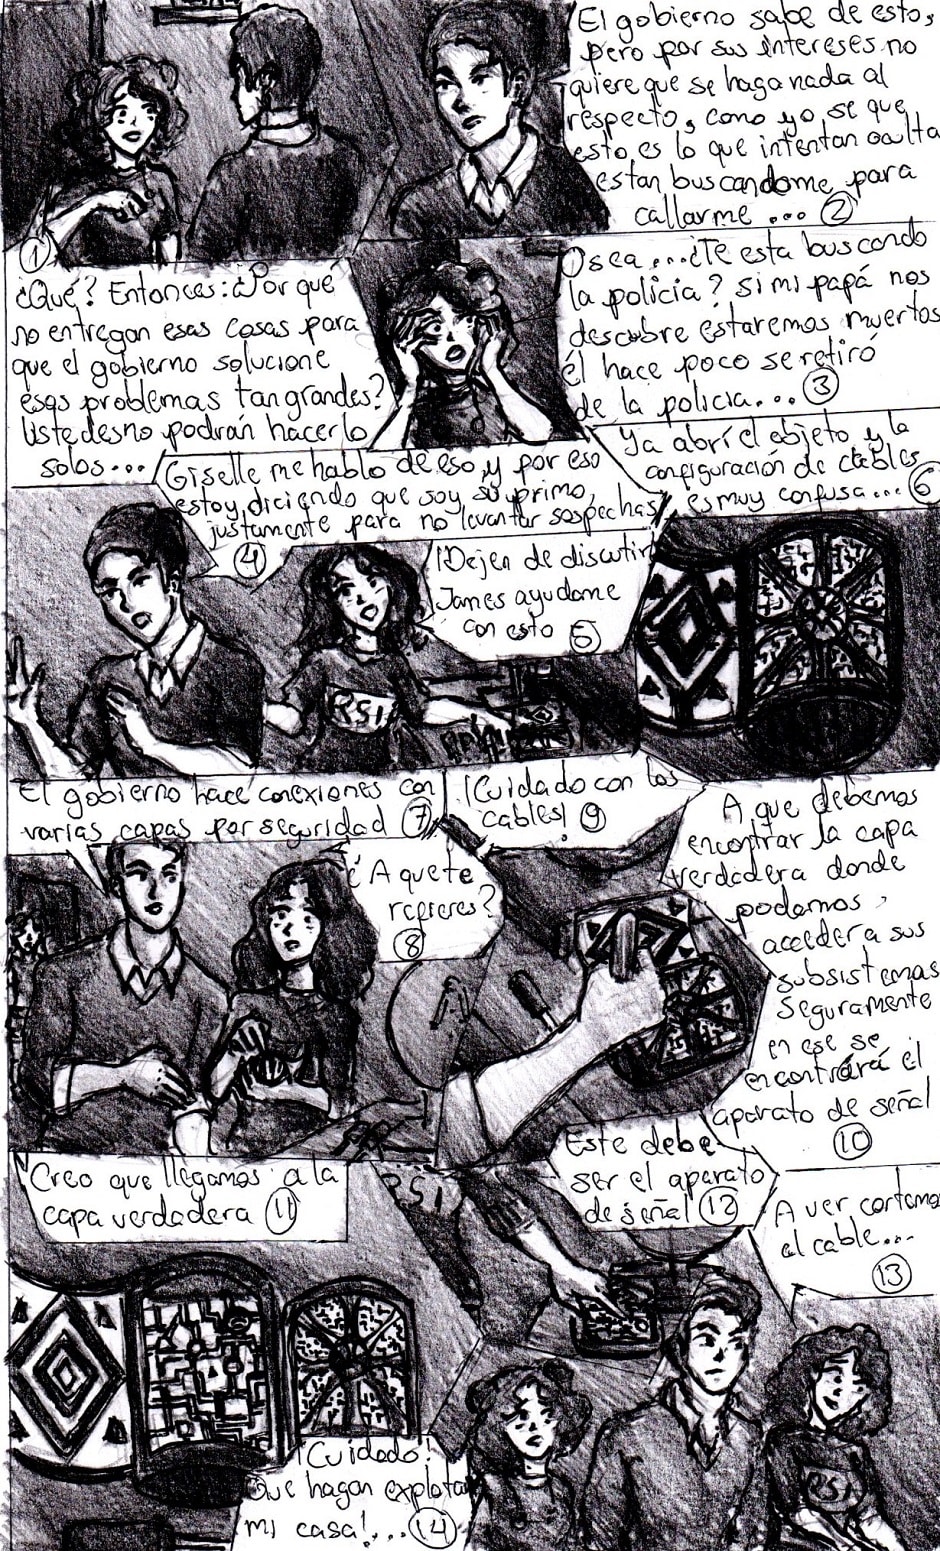 ¿Qué? Entonces: ¿Por qué
no entregan esas cosas para
que el gobierno solucione
esos problemas tan grandes?
Ustedes no podrán hacerlo
solos...
1
El gobierno sabe de esto,
pero por sus intereses no
quiere que se haga nada al
respecto, como yo se que
esto es lo que intentan oculta
estan buscandome para
callarme ... 2
Osea...¿Te esta buscando
la policia? Si mi papá nos
descubre estaremos muertos
él hace poco se retiró
de la policia... 3
Giselle me hablo de eso y por eso
estoy diciendo que soy su primo,
justamente para no levantar sospechas
4
¡Dejen de discutir
James ayudame
con esto 5
RSI
Ya abrí el objeto y la
configuración de cables
es muy confusa... 6
El gobierno hace conexiones con
varias capas por seguridad 7
¿A que te
refieres?
8
¡Cuidado con los
cables! 9
A que debemos
encontrar la capa
verdadera donde
podamos
acceder a sus
subsistemas
seguramente
en ese se
encontrará el
aparato de señal
10
Creo que llegamos a la
capa verdadera 11
RSI
Este debe
ser el aparato
de señal 12
A ver cortemos
el cable...
13
¡Cuidado!
Que hagan explotar
mi casa!... 14
RSI